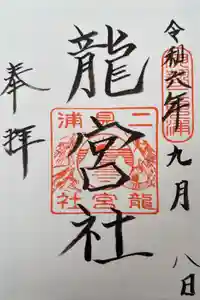 令和元年九月八日
龍宮社
奉拝
二見
龍宮
浦社